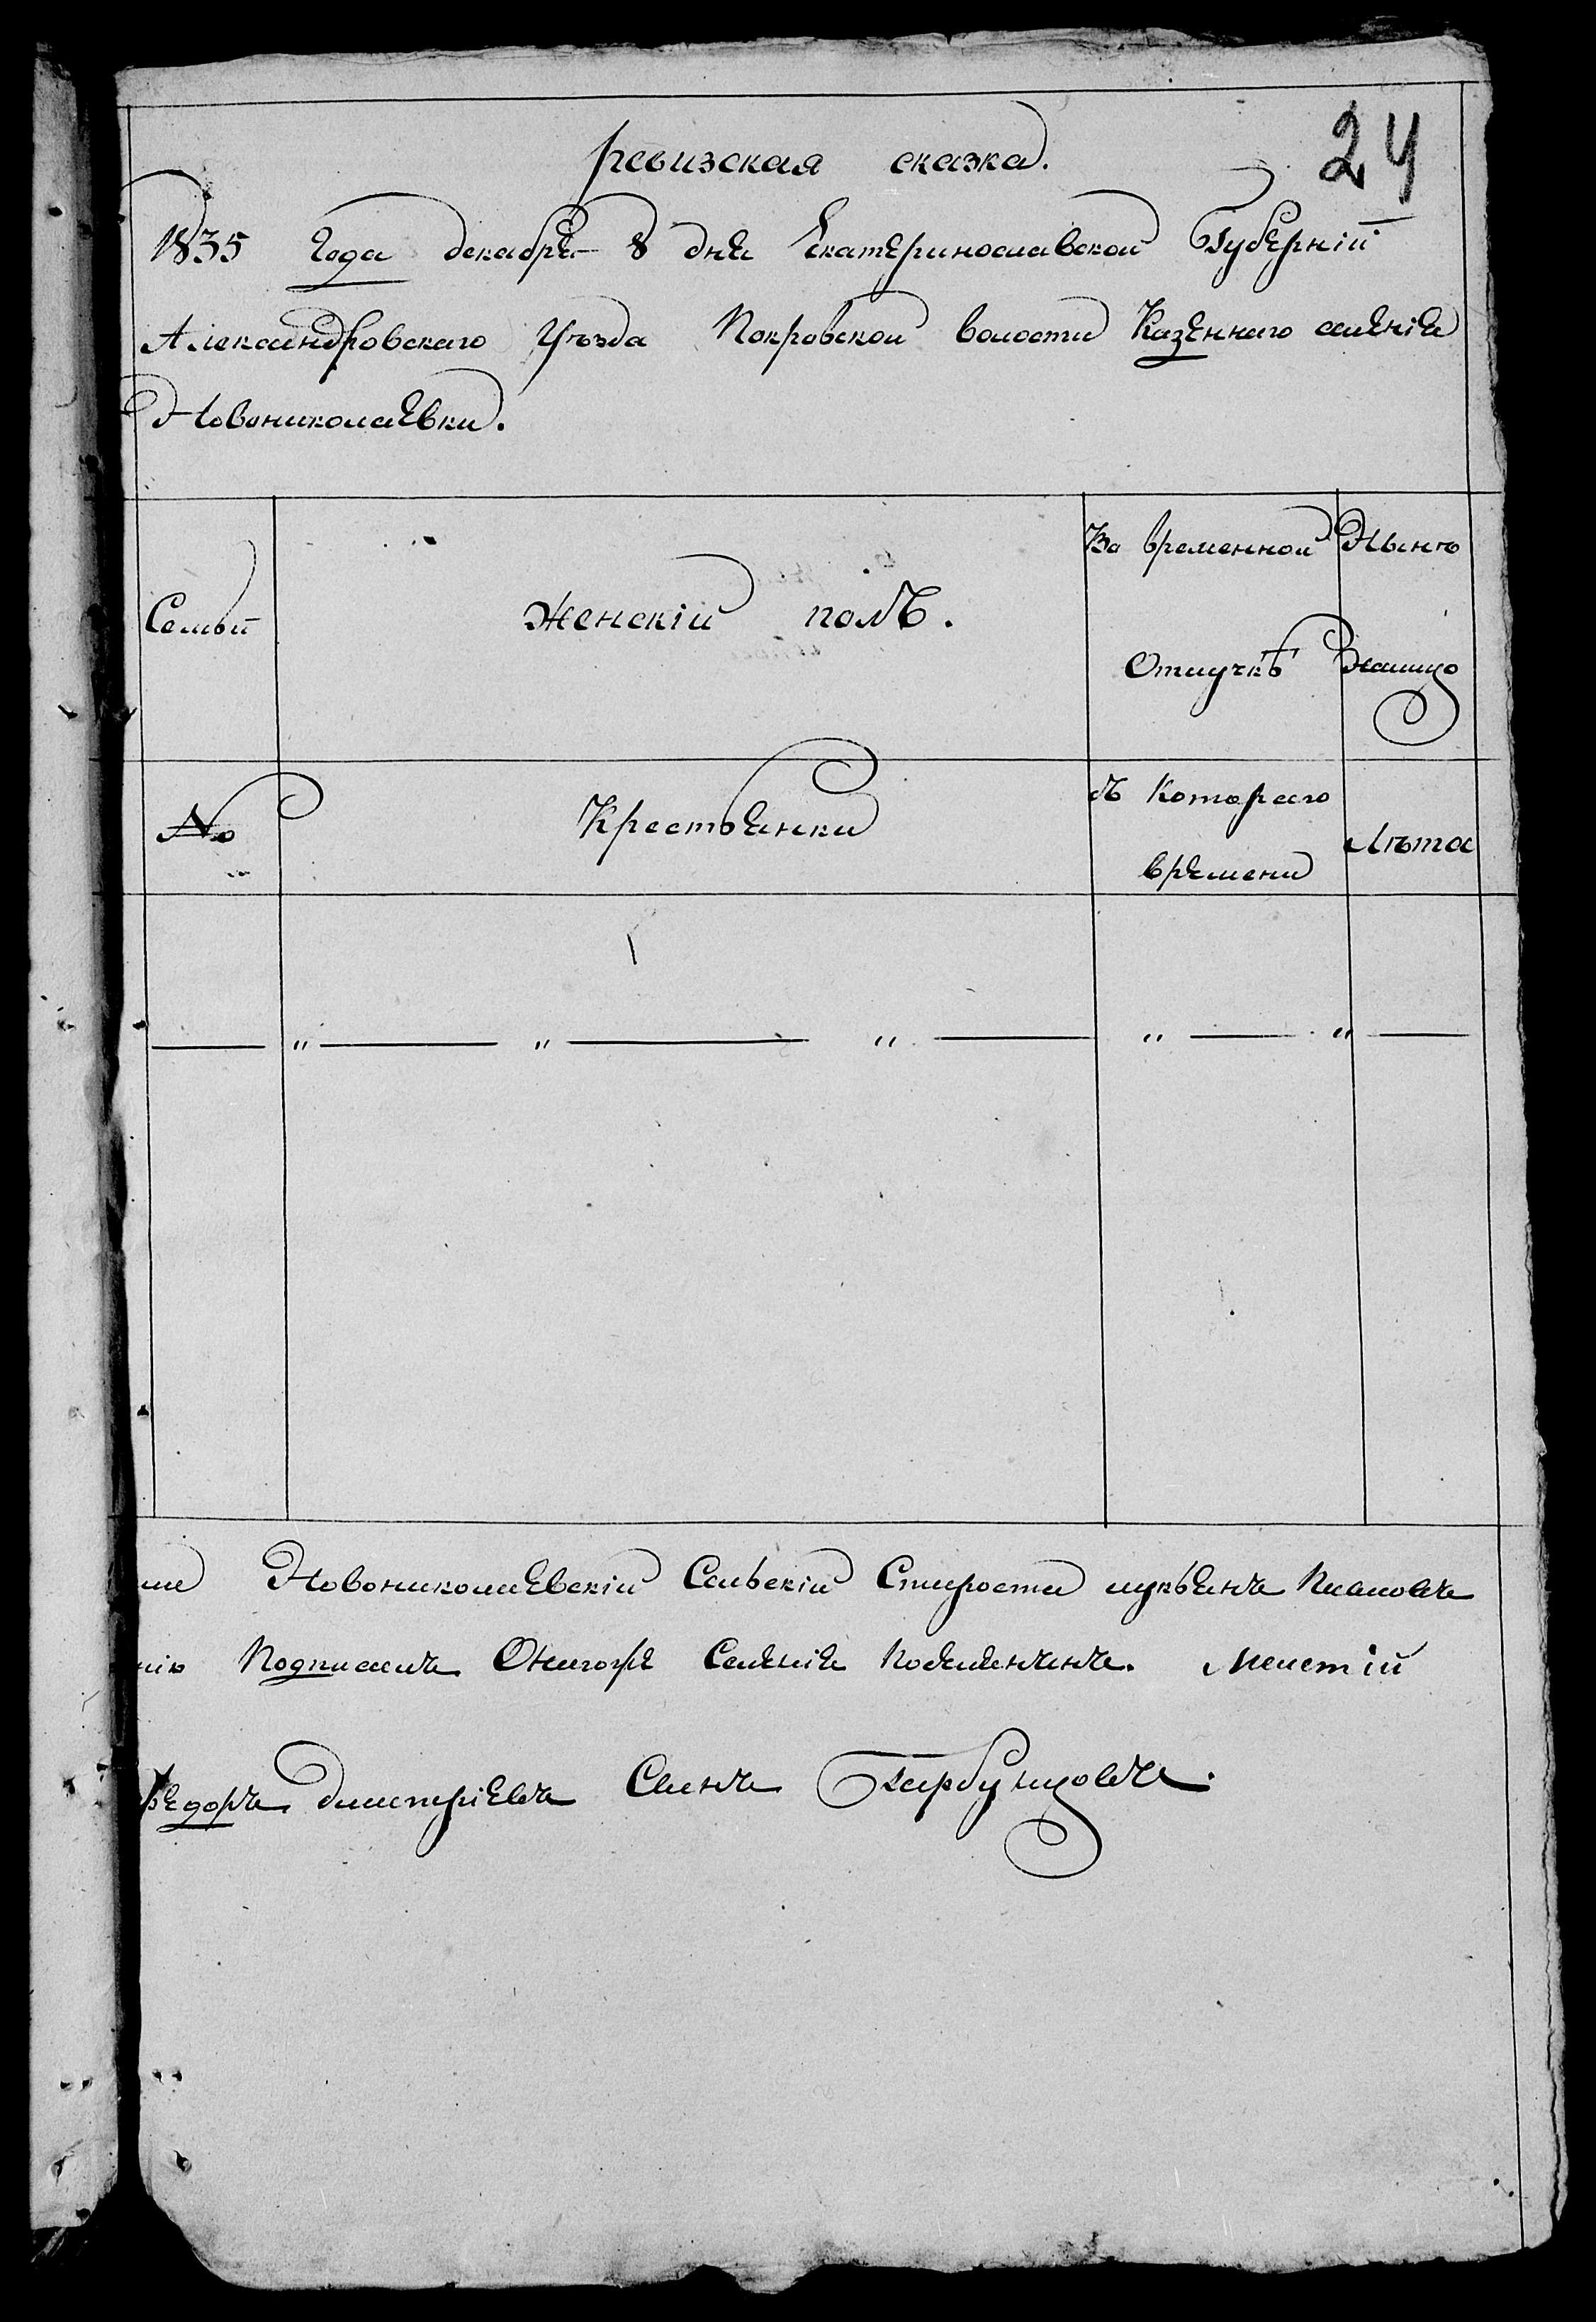 24
ревизская сказка.
1835 года декабря 8 дня Екатеринославской Губернїи
Александровского Уѣзда Покровской волости Казенного селенїя
Новониколаевки.
Семьи
женскїй полъ.
Во временной
Отлучкѣ
Нынѣ
Налицо
№
Крестьянки
съ Которого
времени
Лѣта
— " — " — " — " — " —
Новониколаевскїй Сельскїй Староста лукьянъ
Подписалъ Онагоже Селенїя Поселенинъ. Мелетїй
Федоръ дмитрїевъ Сынъ Гарбузовъ.